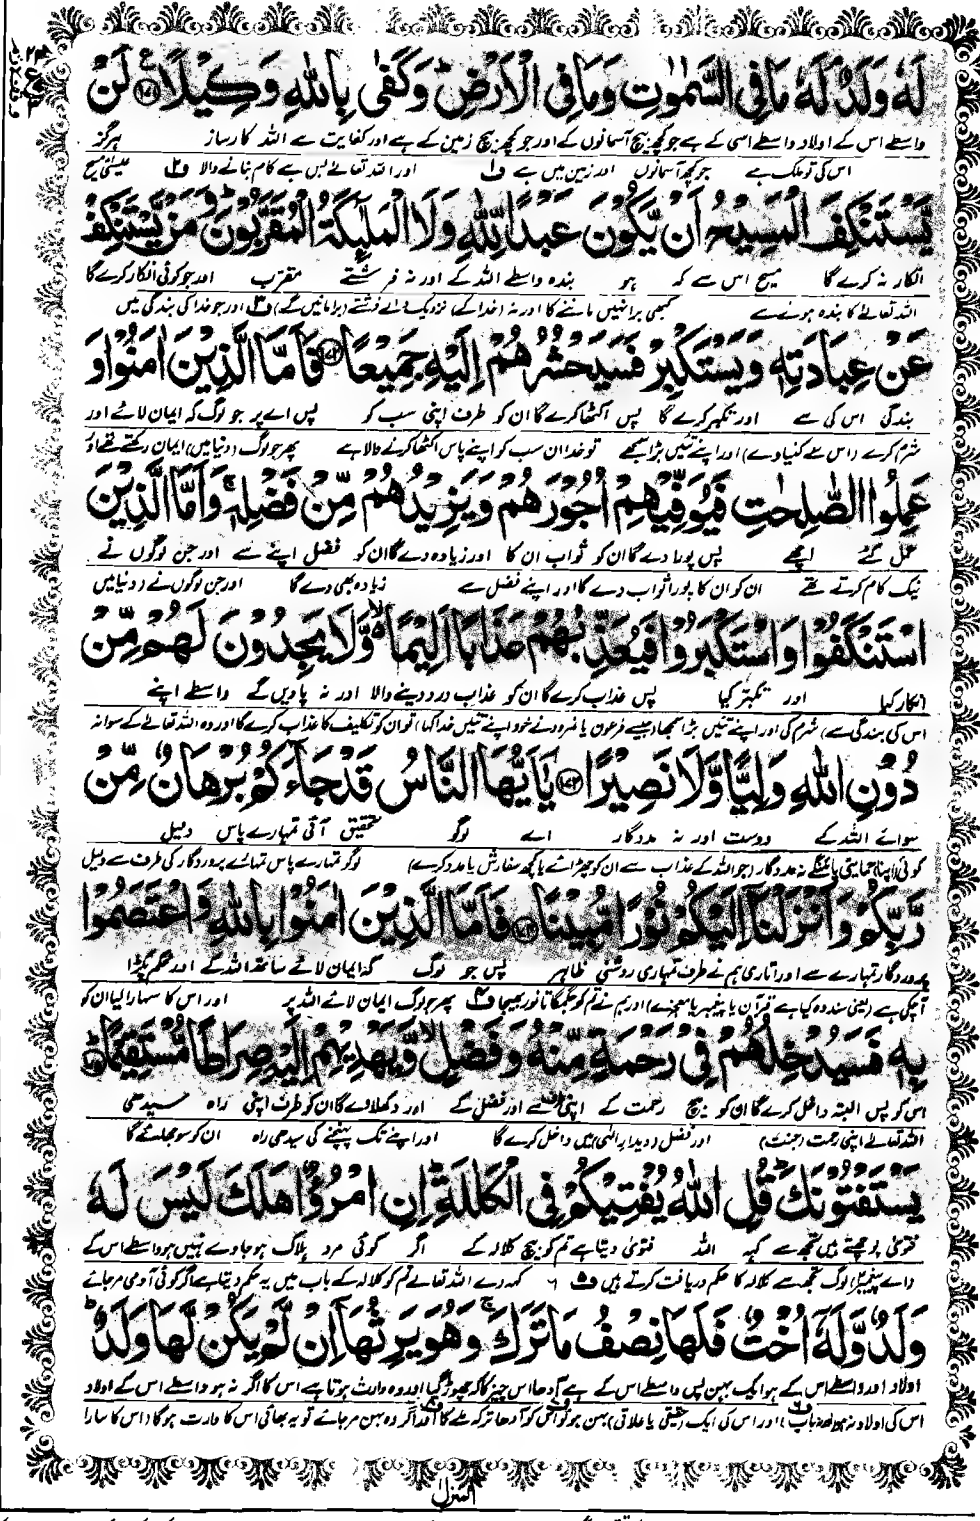 لَهٗ وَلَدٌ لَهٗ مَا فِي السَّمٰوٰتِ وَمَا فِي الْاَرْضِ وَكَفٰى بِاللّٰهِ وَكِيْلًا ﴿١٧١﴾ لَنْ
واسطے اس کے اولاد واسطے اسی کے ہے جو کچھ بیچ آسمانوں کے اور جو کچھ بیچ زمین کے ہے اور کفایت ہے اللہ کارساز ہرگز
اس کی تو ملک ہے جو کچھ آسمانوں اور زمین میں ہے ف۱ اور اللہ تعالےٰ بس ہے کام بنانے والا ف۲ عیسیٰ مسیح
يَّسْتَنْكِفَ الْمَسِيْحُ اَنْ يَّكُوْنَ عَبْدًا لِّلّٰهِ وَلَا الْمَلٰٓئِكَةُ الْمُقَرَّبُوْنَ وَمَنْ يَّسْتَنْكِفْ
انکار نہ کرے گا مسیح اس سے کہ ہو بندہ واسطے اللہ کے اور نہ فرشتے مقرب اور جو کوئی انکار کرے گا
اللہ تعالےٰ کا بندہ ہونے سے کبھی برا نہیں ماننے کا اور نہ (خدا کے) نزدیک والے فرشتے (برا مانیں گے) ف۳ اور جو خدا کی بندگی میں
عَنْ عِبَادَتِهٖ وَيَسْتَكْبِرْ فَسَيَحْشُرُهُمْ اِلَيْهِ جَمِيْعًا ﴿١٧٢﴾ فَاَمَّا الَّذِيْنَ اٰمَنُوْا وَ
بندگی اس کی سے اور تکبر کرے گا پس اکٹھا کرے گا ان کو طرف اپنی سب کو پس اے پر جو لوگ کہ ایمان لائے اور
شرم کرے (اس سے کنیاوے) اور اپنے تئیں بڑا سمجھے تو خدا ان سب کو اپنے پاس اکٹھا کرنے والا ہے پھر جو لوگ (دنیا میں) ایمان رکھتے تھے اور
عَمِلُوا الصّٰلِحٰتِ فَيُوَفِّيْهِمْ اُجُوْرَهُمْ وَيَزِيْدُهُمْ مِّنْ فَضْلِهٖ وَاَمَّا الَّذِيْنَ
عمل کئے اچھے پس پورا دے گا ان کو ثواب ان کا اور زیادہ دے گا ان کو فضل اپنے سے اور جن لوگوں نے
نیک کام کرتے تھے ان کو ان کا پورا ثواب دے گا اور اپنے فضل سے زیادہ بھی دے گا اور جن لوگوں نے (دنیا میں
اسْتَنْكَفُوْا وَاسْتَكْبَرُوْا فَيُعَذِّبُهُمْ عَذَابًا اَلِيْمًا وَّلَا يَجِدُوْنَ لَهُمْ مِّنْ
انکار کیا اور تکبر کیا پس عذاب کرے گا ان کو عذاب درد دینے والا اور نہ پاویں گے واسطے اپنے
اس کی بندگی سے) شرم کی اور اپنے تئیں بڑا سمجھا (جیسے فرعون یا نمرود نے خود اپنے تئیں خدا کہا) تو ان کو تکلیف کا عذاب کرے گا اور وہ اللہ تعالےٰ کے سوا نہ
دُوْنِ اللّٰهِ وَلِيًّا وَّلَا نَصِيْرًا ﴿١٧٣﴾ يٰٓاَيُّهَا النَّاسُ قَدْ جَآءَكُمْ بُرْهَانٌ مِّنْ
سوائے اللہ کے دوست اور نہ مددگار اے لوگو تحقیق آئی تمہارے پاس دلیل
کوئی اپنا حمایتی پائینگے نہ مددگار (جو اللہ کے عذاب سے ان کو چھڑائے یا کچھ سفارش یا مدد کرے) لوگو تمہارے پاس تمہارے پروردگار کی طرف سے دلیل
رَّبِّكُمْ وَاَنْزَلْنَآ اِلَيْكُمْ نُوْرًا مُّبِيْنًا ﴿١٧٤﴾ فَاَمَّا الَّذِيْنَ اٰمَنُوْا بِاللّٰهِ وَاعْتَصَمُوْا
پروردگار تمہارے سے اور اتاری ہم نے طرف تمہاری روشنی ظاہر پس جو لوگ کہ ایمان لائے ساتھ اللہ کے اور محکم پکڑا
آچکی ہے (یعنی سند وہ کیا ہے قرآن یا پیغمبر یا معجزے) اور ہم نے تم کو جگمگاتا نور بھیجا ف۴ پھر جو لوگ ایمان لائے اللہ پر اور اس کا سہارا لیا ان کو
بِهٖ فَسَيُدْخِلُهُمْ فِيْ رَحْمَةٍ مِّنْهُ وَفَضْلٍ وَّيَهْدِيْهِمْ اِلَيْهِ صِرَاطًا مُّسْتَقِيْمًا ﴿١٧٥﴾
اس کو پس البتہ داخل کرے گا ان کو بیچ رحمت کے اپنی سے اور فضل کے اور دکھلاوے گا ان کو طرف اپنی راہ سیدھی
اللہ تعالےٰ اپنی رحمت (جنت) اور فضل (دیدار الٰہی) میں داخل کرے گا اور اپنے تک پہنچنے کی سیدھی راہ ان کو سوجھائے گا
يَسْتَفْتُوْنَكَ قُلِ اللّٰهُ يُفْتِيْكُمْ فِي الْكَلٰلَةِ اِنِ امْرُؤٌا هَلَكَ لَيْسَ لَهٗ
فتویٰ پوچھتے ہیں تجھ سے کہہ اللہ فتویٰ دیتا ہے تم کو بیچ کلالہ کے اگر کوئی مرد ہلاک ہو جاوے نہیں ہو واسطے اس کے
(اے پیغمبر) لوگ تجھ سے کلالہ کا حکم دریافت کرتے ہیں ف۵ کہہ دے اللہ تعالےٰ تم کو کلالہ کے باب میں یہ حکم دیتا ہے اگر کوئی آدمی مر جائے
وَلَدٌ وَّلَهٗٓ اُخْتٌ فَلَهَا نِصْفُ مَا تَرَكَ وَهُوَ يَرِثُهَآ اِنْ لَّمْ يَكُنْ لَّهَا وَلَدٌ
اولاد اور واسطے اس کے ہو ایک بہن پس واسطے اس کے ہے آدھا اس چیز کا کہ چھوڑ گیا اور وہ وارث ہوتا ہے اس کا اگر نہ ہو واسطے اس کے اولاد
اس کی اولاد نہ ہو (نہ باپ) اور اس کی ایک (حقیقی یا علاتی) بہن ہو تو اس کو آدھا ترکہ ملے گا اور اگر وہ بہن مر جائے تو یہ بھائی اس کا وارث ہوگا (اس کا سارا
المنزل